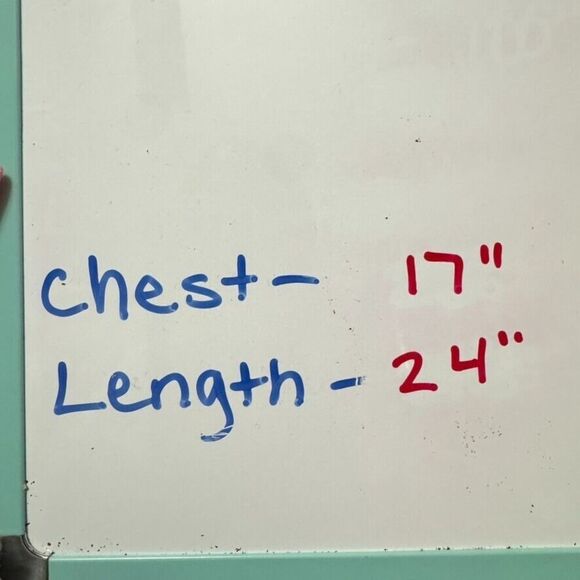 Chest- 17"
Length - 24"